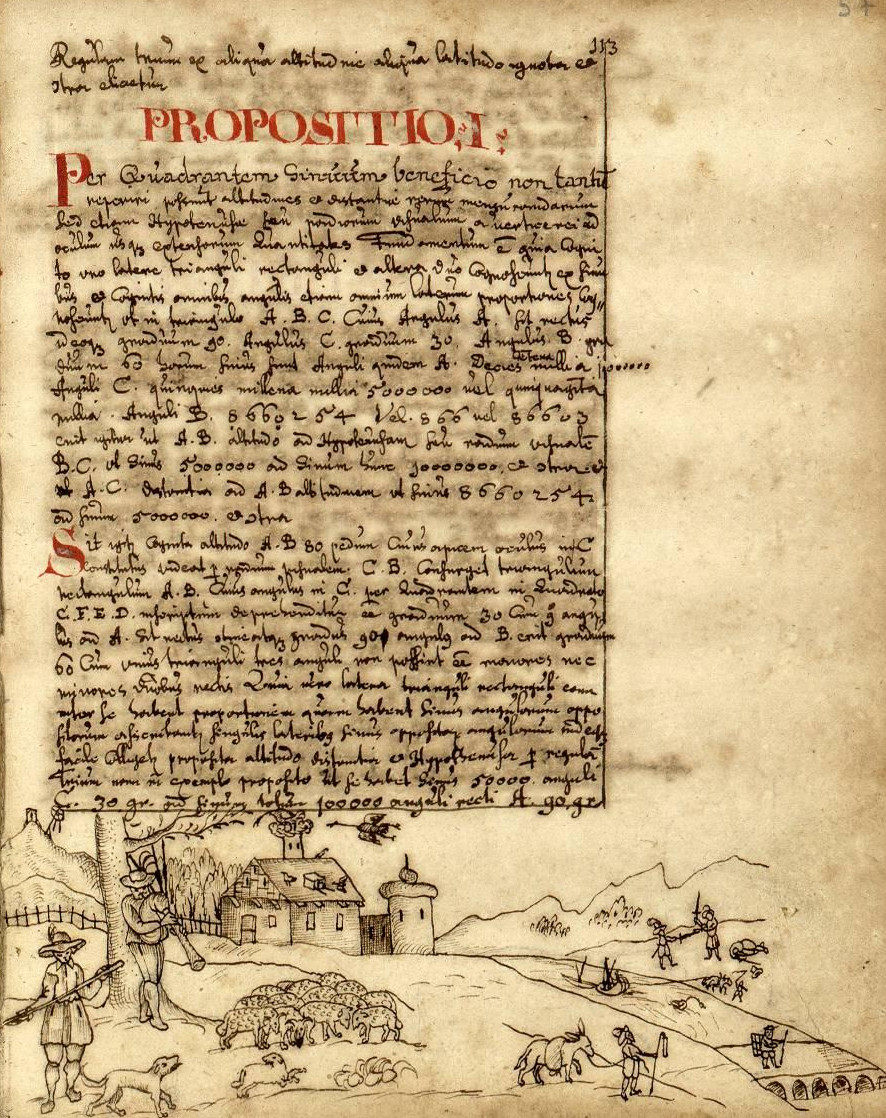 57
113
Regulam trium ex aliqua altitudine aliqua latitudo ignota
itra elicetur
PROPOSITIO. I.
Per Quadrantem Sinuum beneficio non tantum
reperiri possunt altitudines et distantiæ rerum mensurandarum
sed etiam Hypotenusæ seu radiorum visualium a vertice rei ad
oculum usq; extensorum Quantitates Fundamentum est quia Cogni
to uno latere trianguli rectanguli et altera duo Cognoscuntur ex sinu
bus et Cognitis omnibus angulis etiam omnium laterum proportiones Cog„
noscuntur ut in triangulo A. B. C. Cuius Angulus A. sit rectus
ideoq; graduum 90. Angulus C. graduum 30. Angulus B. gra
duum 60 horum sinus sunt Anguli quidem A. Decies millia
Anguli C. quinquies millena millia 5000000 vel quinquaginta
millia. Anguli B. 8660254 Vel. 866 vel 86603
erit igitur ut A. B. altitudo ad Hypotenusam seu radium visualem
B. C. ut sinus 5000000 ad sinum hunc 10000000, et
ut A. C. distantia ad A. B altitudinem ut sinus 8660254
ad sinum 5000000. et
Sit igitur Cognita altitudo A. B 80 pedum Cuius apicem oculus in C
Constitutus videat per radium visualem. C. B. Consurget triangulum
rectangulum A. B. Cuius angulus in C. per Quadrantem in Quadrato
C. F. E. D. inscriptum deprenditur esse graduum 30 Cum angu
lus ad A. sit rectus gradus 90 angulus ad B. erit graduum
60 Cum unius trianguli tres anguli non possint esse maiores nec
minores duobus rectis Quia vero latera trianguli rectanguli eam
inter se habent proportionem quam habent sinus angulorum oppo
sitorum singulis lateribus sinus oppositorum angulorum
facile proposita altitudo distantia et Hypothenusa per regulam
Trium nam in exemplo proposito ut se habet sinus 50000. anguli
C. 30 gr. ad sinum totum 100000 anguli recti A. 90. gr.